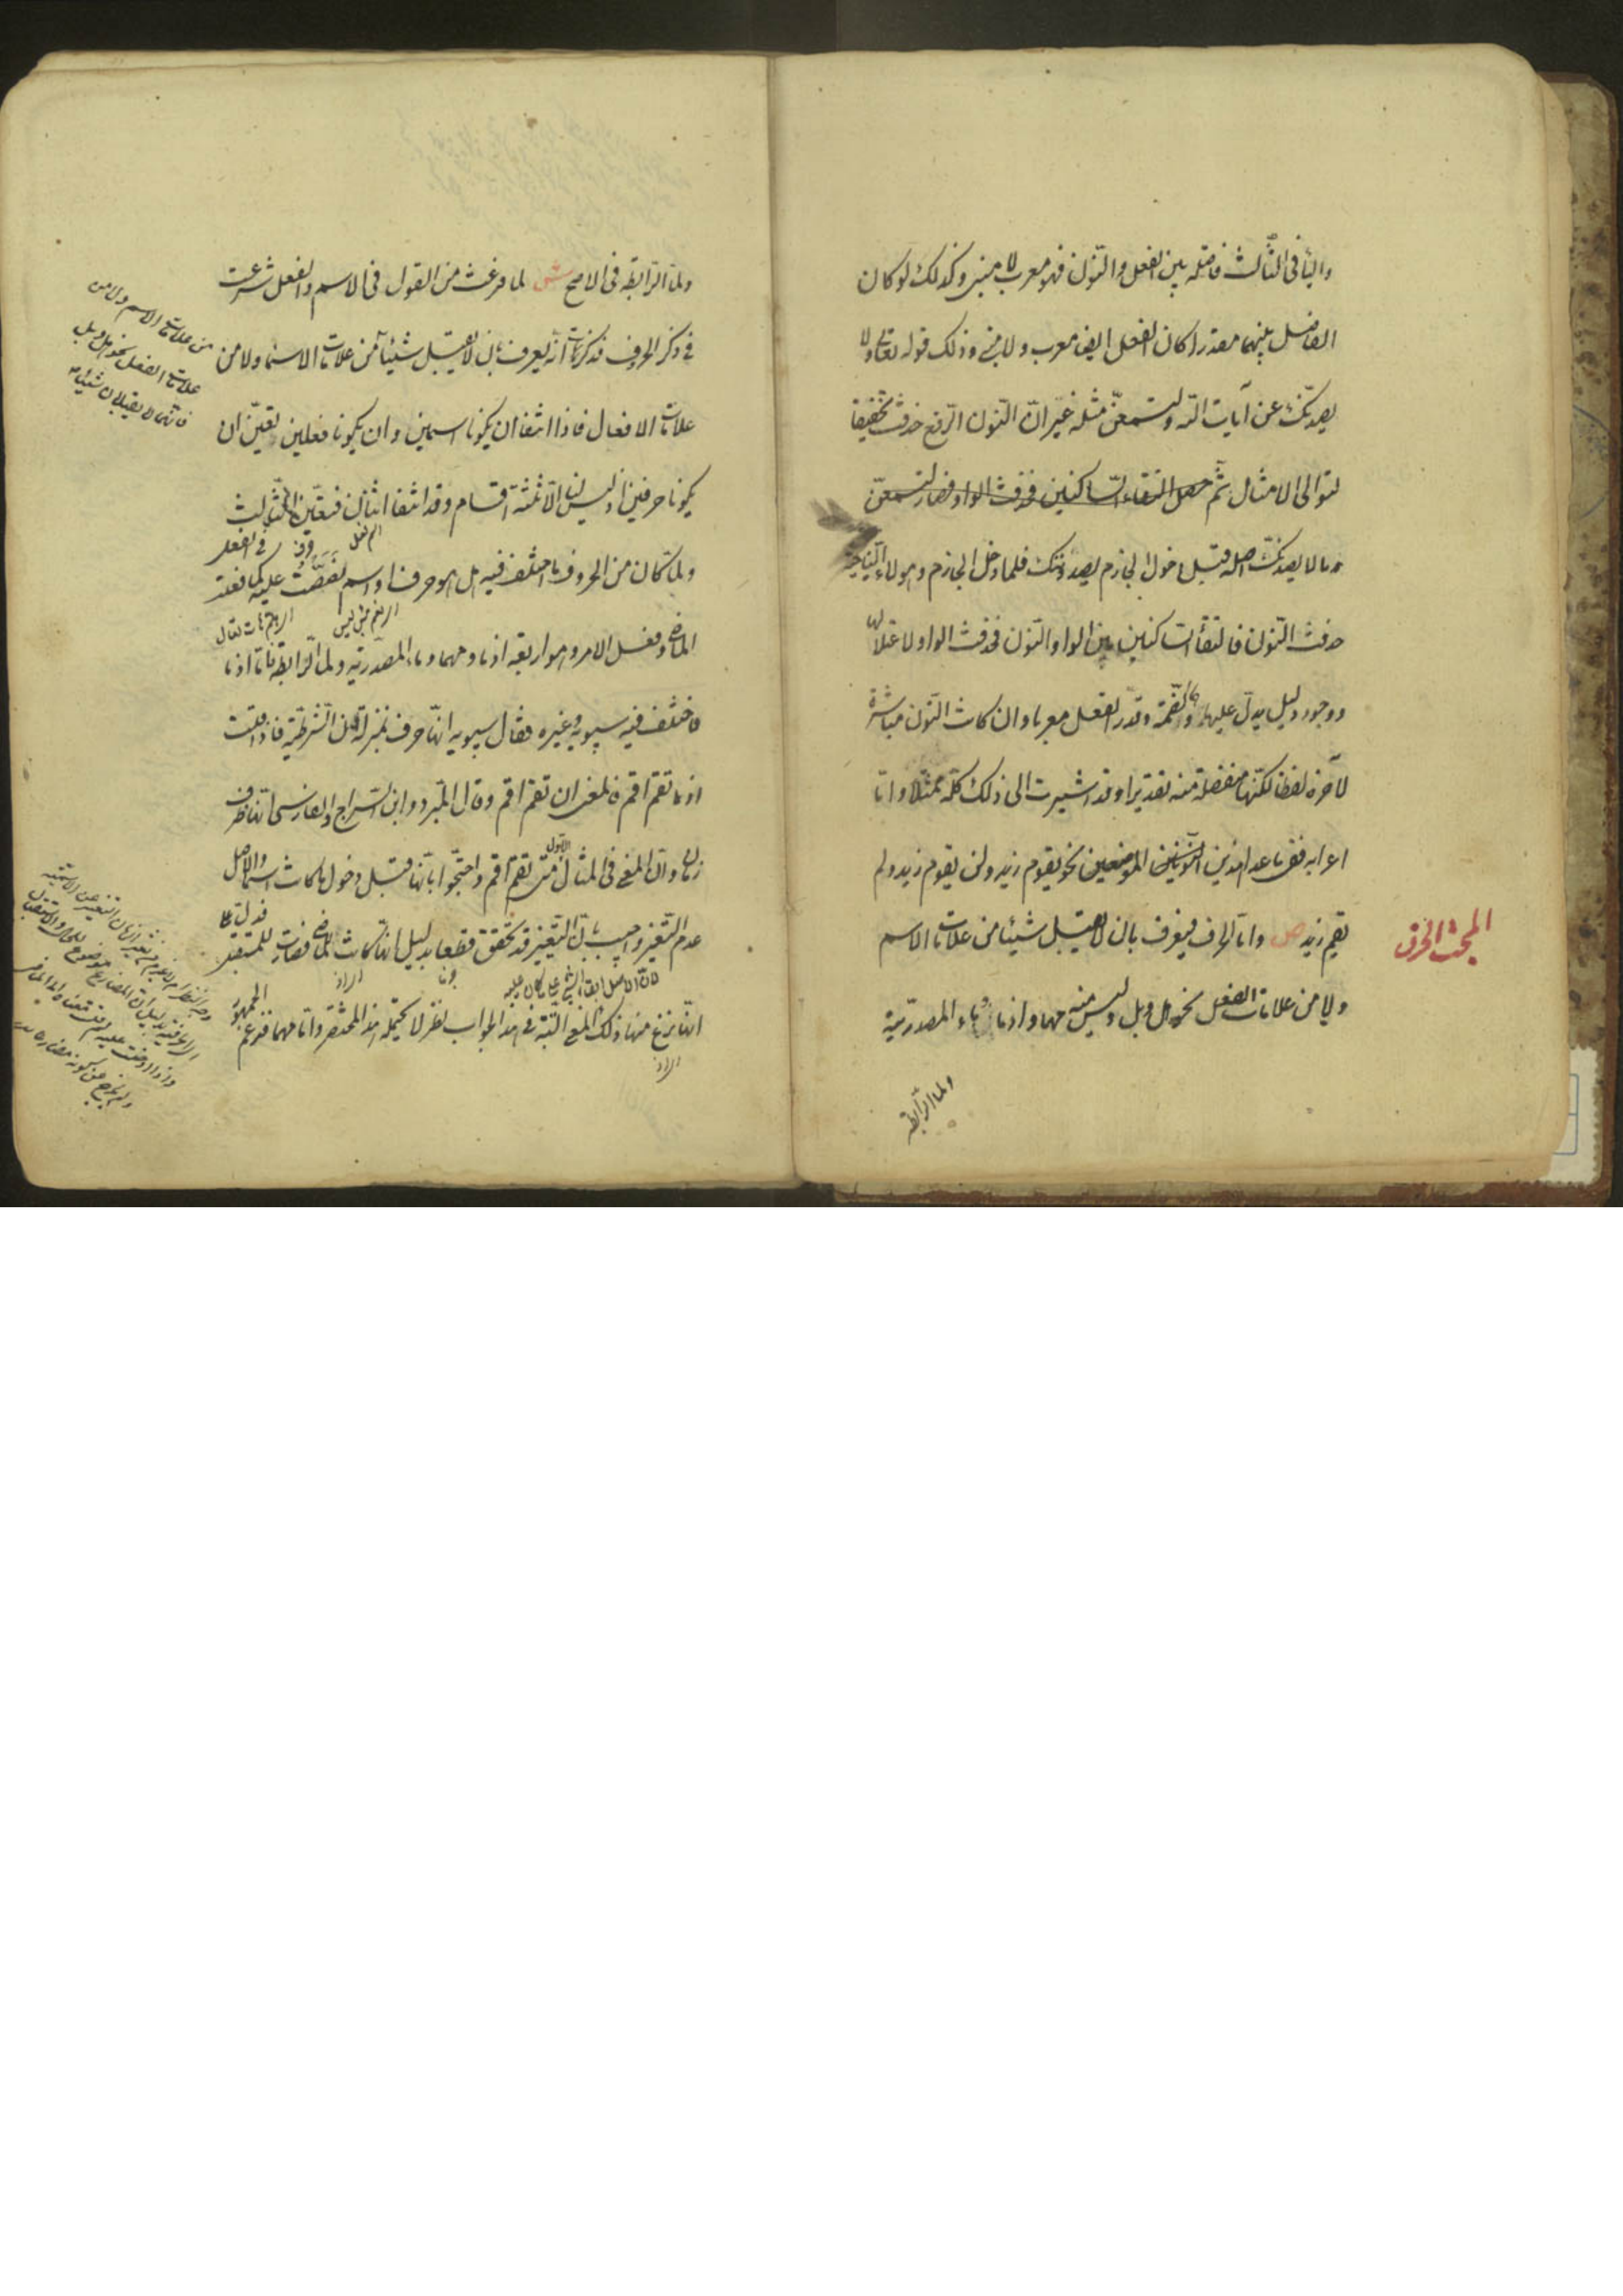 والياء في الثالث فاصلة بين الفعل والنون فهو معرب لا مبني وكذلك لو كان
الفاصل بينهما مقدرا كان الفعل ايضا معرب ولا مبني وذلك قوله تعالى ولا
يصدنك عن آيات الله ولتسمعن مثله غير ان النون الرفع حذفت تخفيفا
لتوالي الامثال ثم حصل التقاء الساكنين فحذفت الواو فصار لتسمعن
لا يصدنك اصله قبل دخول الجازم يصدوننك فلما دخل الجازم وهو لا الناهية
حذفت النون فالتقا الساكنين بين الواو والنون فحذفت الواو لاعتلالها
ووجود دليل يدل عليها وهو الضمة وقدر الفعل معربا وان كانت النون مباشرة
لآخره لفظا لكنها منفصلة منه تقديرا وقد اشيرت الى ذلك كله ممثلا واما
اعرابه ففي ما عدا هذين الموضعين نحو يقوم زيد ولن يقوم زيد ولم
يقم زيد ص واما الحرف فيعرف بان لا يقبل شيئا من علامات الاسم
ولا من علامات الفعل نحو هل وبل وليس منه مهما واذما وماء المصدرية
ولما الرابطة
المبحث الحرف
ولما الرابطة في الاصح ش لما فرغت من القول في الاسم والفعل شرعت
في ذكر الحروف فذكرت انه يعرف بان لا يقبل شيئا من علامات الاسماء ولا من
علامات الافعال فاذا انتفا ان يكونا اسمين وان يكونا فعلين تعين ان
يكونا حرفين اذ ليس لنا الا ثلثة اقسام وقد انتفا اثنان فتعين الثالث
ولما كان من الحروف ما اختلف فيه هل هو حرف او اسم نصصت عليه كما فعلت
في الفعل
الماضي وفعل الامر وهو اربعة اذما ومهما وماء المصدرية ولما الرابطة فاما اذما
فاختلف فيه سيبويه وغيره فقال سيبويه انها حرف بمنزلة ان الشرطية فاذا قلت
اذما تقم اقم فالمعنى ان تقم اقم وقال المبرد وابن السراج والفارسي انها ظرف
زمان وان المعنى في المثال متى تقم اقم واحتجوا بانها قبل دخول ما كانت اسما والاصل
الاول
عدم التغيير واجيب بان التغيير قد تحقق قطعا بدليل انها كانت للماضي فصارت للمستقبل
فدل على
انها نزع منها ذلك المعنى البتة وفي هذا الجواب نظر لا يحتمله هذا المختصر واما مهما فزعم
الجمهور
لان الاصل ابقاء الشيء على ما كان عليه
من علامات الاسم ولا من
علامات الفعل نحو هل وبل
فانهما لا يقبلان شيئا